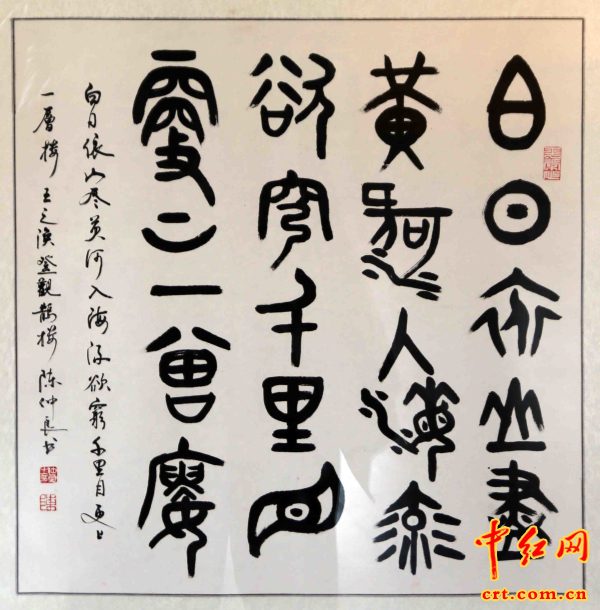 白日依山盡
黃河入海流
欲窮千里目
更上一層樓
白日依山尽黄河入海流欲窮千里目更上
一層楼 王之涣登觀鵲楼 陈仲良书
中红网
crt.com.cn